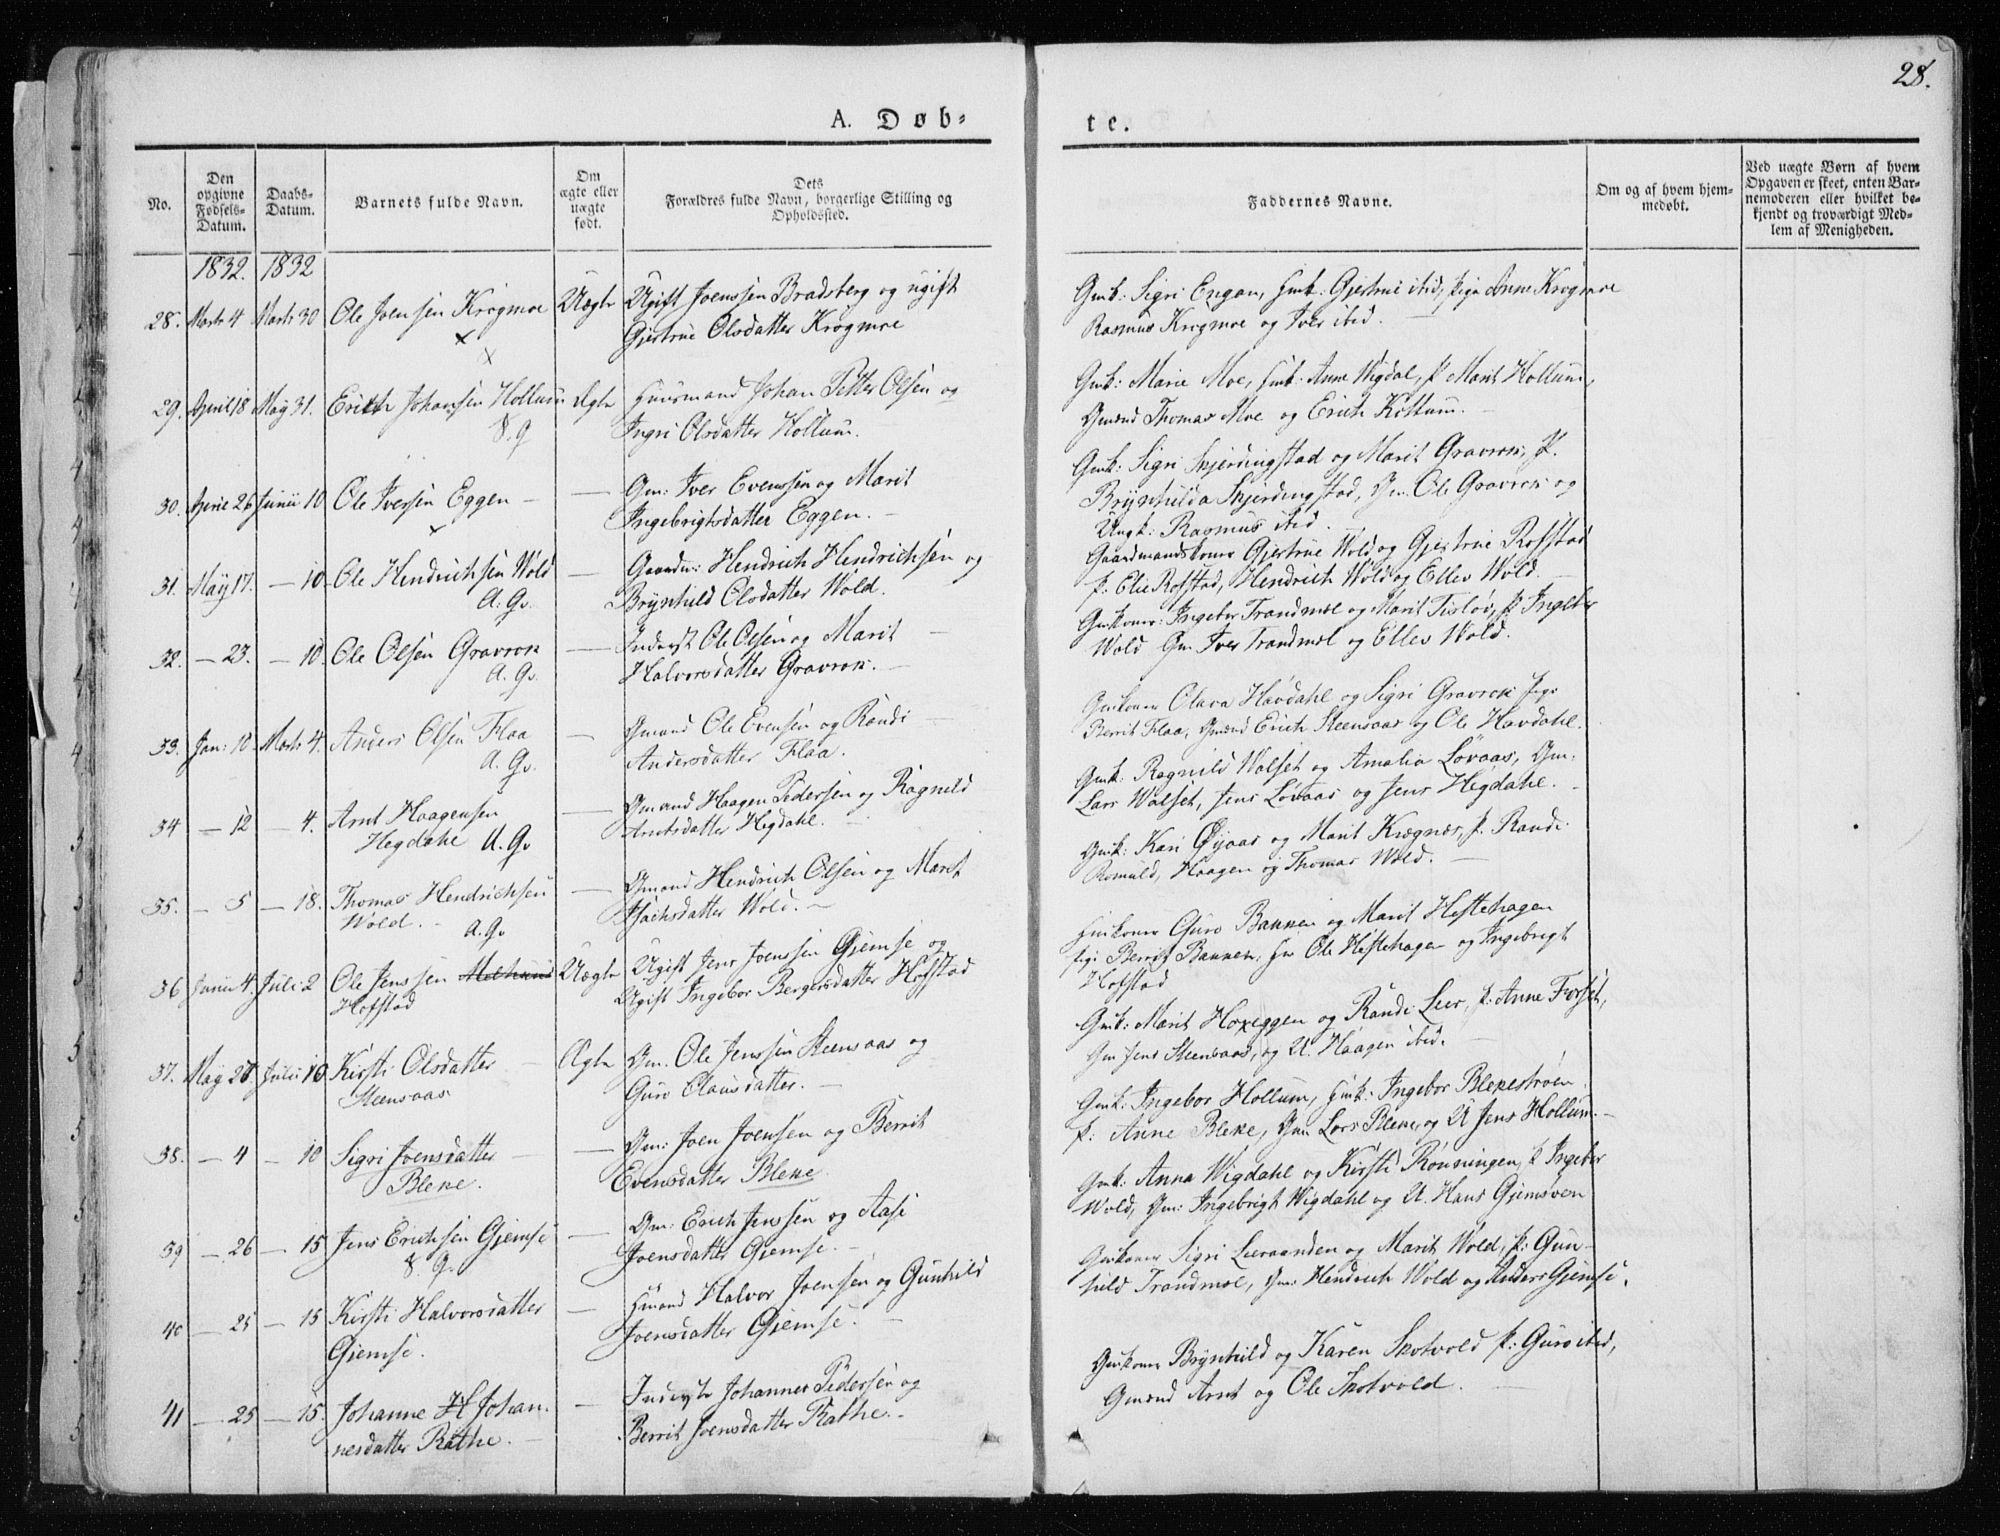 28.
A. Døb-
te.
No.
Den opgivne Fødsels-Datum.
Daabs-Datum.
Barnets fulde Navn.
Om ægte eller uægte født.
Dets Forældres fulde Navn, borgerlige Stilling og Opholdssted.
Faddernes Navne.
Om og af hvem hjemmedøbt.
Ved uægte Børn af hvem Opgaven er skeet, enten Barnemoderen eller hvilket bekjendt og troværdigt Medlem af Menigheden.
1832. 1832
28. Marts 4 Marts 30 Ole Joensen Krogmoe Uægte Ugift Joenssen Bradsberg og ugift
Gjertrue Olsdatter Krogmoe
Gmk: Sigri Engan, Hmk: Gjertrue ibid, Pige Anne Krogmoe
Rasmus Krogmoe og Iver ibid.
29. April 18 May 31. Erich Johansen Hollum Ægte Huusmand Johan Petter Olsen og
Ingri Olsdatter Hollum.
Gmk: Marie Moe, Hmk: Anne Wigdal, P Marit Hollum,
Gmand Thomas Moe og Erich Hollum.
30. April 26 Junii 10 Ole Iversen Eggen — Gm: Iver Evensen og Marit
Ingebrigtsdatter Eggen. —
Gmk: Sigri Skjerdingstad og Marit Gravrok, P.
Brynhilda Skjerdingstad, Gm. Ole Gravrok og
Ungk: Rasmus ibid.
31. May 17. — 10. Ole Hendrichsen Wold — Gaardm: Hendrich Hendrichsen og
A. Gv. Brynhild Olsdatter Wold.
Gaardmandskoner Gjertrue Wold og Gjertrue Rofstad
P. Elie Rofstad, Hendrich Wold og Ellev Wold.
32. — 23. — 10. Ole Olsen Gravrok — Inderst Ole Olsen og Marit
A. Gv. Halvorsdatter Gravrok. —
Gmkoner Ingebor Trandmoe og Marit Tisløv, P Ingebor
Wold Gm Iver Trandmoe og Ellev Wold.
33. Jan: 10. Marts 4. Anders Olsen Flaa — Gmand Ole Evensen og Randi
A. Gv. Andersdatter Flaa.
Gmkoner Olava Havdahl og Sigri Gravrok Pige
Berrit Flaa, Gmand Erich Steensaas og Ole Havdahl.
34 — 12 — 4. Arnt Haagensen — Gmand Haagen Pedersen og Ragnild
Hegdahl A. Gv Arntsdatter Hegdahl. —
Gmk: Ragnild Walset og Amalia Løvaas, Gm:
Lars Walset, Jens Løvaas og Jens Hegdahl.
35. — 5 — 18. Thomas Hendrichsen — Gmand Hendrich Olsen og Marit
Wold. — A. Gv Wold. —
Gmk: Kari Øyaas og Marit Krognæs, P. Randi
Romuld, Haagen og Thomas Wold. —
36 Junii 4. Juli 2 Ole Jenssen Melhuus Uægte Ugift Jens Joenssen Gjemse og
Hofstad Ugift Ingebor Bergersdatter Hofstad
Hmkoner Guro Bakken og Marit Hestehagen
Pige Berrit Bakken, Hm Ole Hestehagen og Ingebrigt
Hofstad
37. May 28 Julii 10 Kirsti Olsdatter Ægte Gm. Ole Jenssen Steensaas og
Steensaas Guro Clausdatter. —
Gmk: Marit Hoxeggen og Randi Leer, P: Anne Forset,
Gm Jens Steensaas, og U. Haagen ibid.
38. — 4 — 10 Sigri Joensdatter — Gm: Joen Joensen og Berrit
Bleke. Evensdatter Bleke.
Gmk: Ingebor Hollum, Hmk: Ingebor Blekestrøen
P: Anne Bleke, Gm Lars Bleke, og U Jens Hollum.
39 — 26 — 15 Jens Erichsen Gjemse — Gm: Erich Jenssen og Aase
Joensdatter Gjemse. —
Gmk: Anna Wigdahl og Kirsti Rønningen, P Ingebor
Wold, Gm: Ingebrigt Wigdahl og U. Hans Gjemsøen
40 — 25 — 15 Kirsti Halvorsdatter — Hmand Halvor Joensen og Gunhild
Gjemse. Joensdatter Gjemse. —
Gmkoner Sigri Leeraanden og Marit Wold, P: Gun-
hild Trandmoe, Gm: Hendrich Wold og Anders Gjemse.
41 — 25 — 15. Johanne H Johan- — Inderste Johannes Pedersen og
nesdatter Røthe. — Berrit Joensdatter Røthe. —
Gmkoner Brynhild og Karen Skotvold P: Guro ibid,
Gmand Arnt og Ole Skotvold.